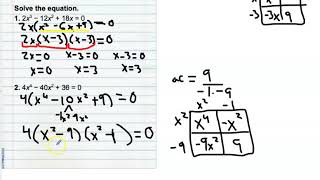 Solve the equation.
1. 2x³ − 12x² + 18x = 0
2x(x² − 6x + 9) = 0
2x(x−3)(x−3) = 0
2x = 0 x−3 = 0 x−3 = 0
x = 0 x = 3 x = 3
2. 4x⁴ − 40x² + 36 = 0
4(x⁴ − 10x² + 9) = 0
-1x² -9x²
4(x² − 9)(x² − 1) = 0
-3 -3x 9
ac = 9
-1 · -9
x² -1
x² x⁴ -x²
-9 -9x² 9